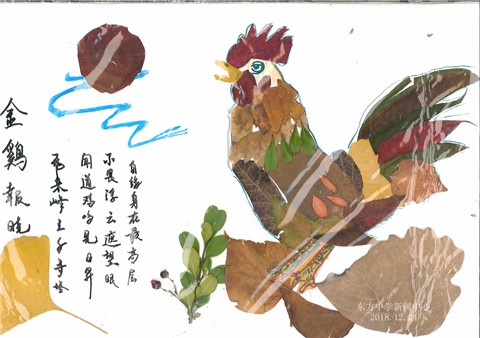 金鷄報晓
飛来峰上千寻塔
闻道鸡鸣见日昇
不畏浮云遮望眼
自缘身在最高层
东方中学新闻中心
2018.12.24